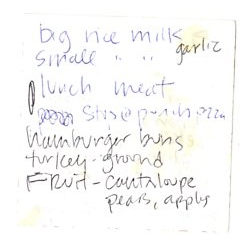 big rice milk
small " " garlic
lunch meat
pizza
Hamburger buns
turkey-ground
FRUIT - cantaloupe
pears, apples